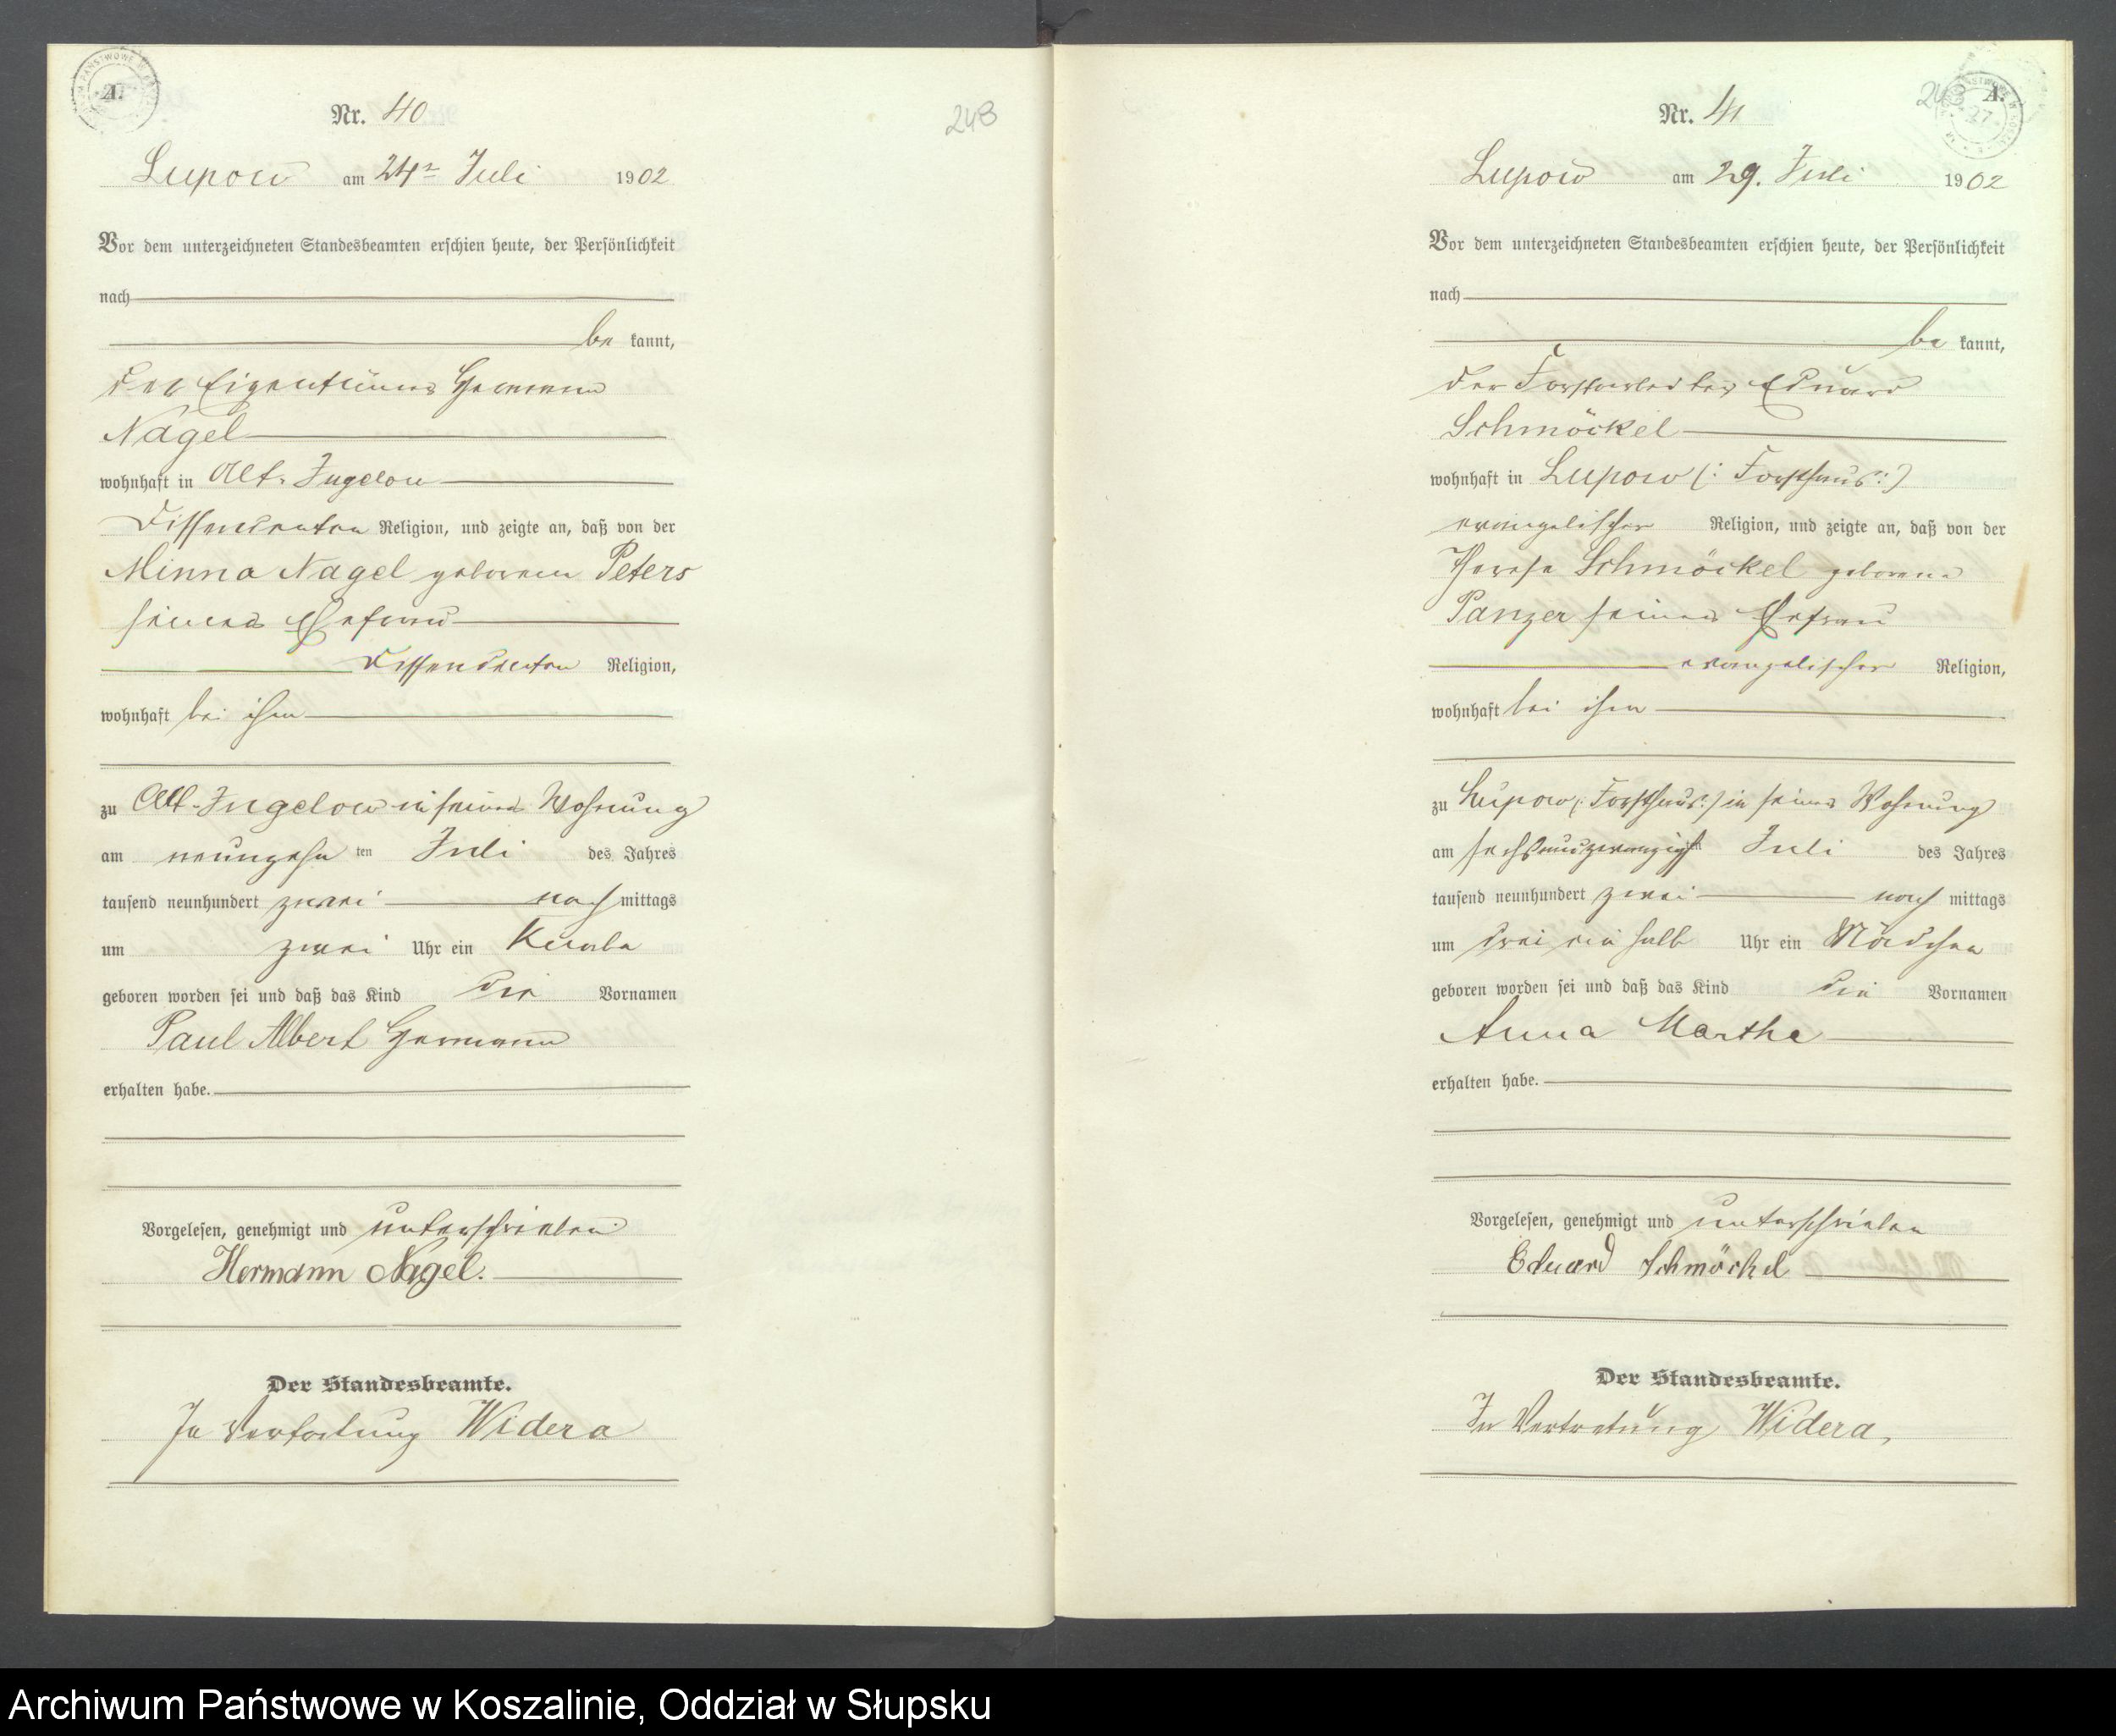 A.
Nr. 40
248
Lupow am 24ten Juli 1902
Vor dem unterzeichneten Standesbeamten erschien heute, der Persönlichkeit
nach
be kannt,
der Eigentümer Hermann
Nagel
wohnhaft in Alt-Jugelow
Dissidenten Religion, und zeigte an, daß von der
Minna Nagel geborenen Peters
seiner Ehefrau
Religion,
wohnhaft bei ihm
zu Alt-Jugelow in seiner Wohnung
am neunzehn ten Juli des Jahres
tausend neunhundert zwei nach mittags
um zwei Uhr ein Knabe
geboren worden sei und daß das Kind die Vornamen
Paul Albert Hermann
erhalten habe.
Vorgelesen, genehmigt und unterschrieben
Hermann Nagel.
Der Standesbeamte.
In Vertretung Widera
A.
Nr. 41
Lupow am 29. Juli 1902
Vor dem unterzeichneten Standesbeamten erschien heute, der Persönlichkeit
nach
be kannt,
der Forstarbeiter Eduard
Schmöckel
wohnhaft in Lupow (: Forsthaus :)
evangelischer Religion, und zeigte an, daß von der
Therese Schmöckel geborene
Panzer seiner Ehefrau
evangelischer Religion,
wohnhaft bei ihm
zu Lupow (: Forsthaus :) in seiner Wohnung
am sechsundzwanzigsten Juli des Jahres
tausend neunhundert zwei nach mittags
um drei ein halb Uhr ein Mädchen
geboren worden sei und daß das Kind die Vornamen
Anna Martha
erhalten habe.
Vorgelesen, genehmigt und unterschrieben
Eduard Schmöckel
Der Standesbeamte.
In Vertretung Widera,
Archiwum Państwowe w Koszalinie, Oddział w Słupsku